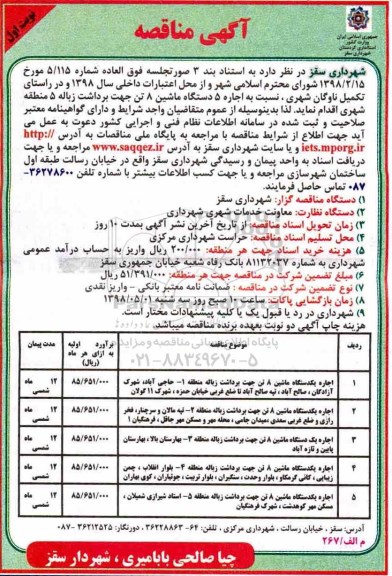 جمهوری اسلامی ایران
وزارت کشور
استانداری کردستان
شهرداری سقز
آگهی مناقصه
نوبت اول
شهرداری سقز در نظر دارد به استناد بند ۳ صورتجلسه فوق العاده شماره ۵/۱۱۵ مورخ
۱۳۹۸/۲/۱۵ شورای محترم اسلامی شهر و از محل اعتبارات داخلی سال ۱۳۹۸ و در راستای
تکمیل ناوگان شهری ، نسبت به اجاره ۵ دستگاه ماشین ۸ تن جهت برداشت زباله ۵ منطقه
شهری اقدام نماید. لذا بدینوسیله از عموم متقاضیان واجد شرایط و دارای گواهینامه معتبر
صلاحیت و ثبت شده در سامانه اطلاعات نظام فنی و اجرایی کشور دعوت به عمل می
آید جهت اطلاع از شرایط مناقصه با مراجعه به پایگاه ملی مناقصات به آدرس http://
iets.mporg.ir و یا سایت شهرداری سقز به آدرس www.saqqez.ir مراجعه و یا جهت
دریافت اسناد به واحد پیمان و رسیدگی شهرداری سقز واقع در خیابان رسالت طبقه اول
ساختمان شهرسازی مراجعه و یا جهت کسب اطلاعات بیشتر با شماره تلفن ۳۶۲۷۸۶۰۰-
۰۸۷ تماس حاصل فرمایند.
۱) دستگاه مناقصه گزار: شهرداری سقز
۲) دستگاه نظارت: معاونت خدمات شهری شهرداری
۳) زمان تحویل اسناد مناقصه: از تاریخ آخرین نشر آگهی بمدت ۱۰ روز
۴) محل تسلیم اسناد مناقصه: حراست شهرداری مرکزی
۵) هزینه خرید اسناد جهت هر منطقه: ۲۰۰/۰۰۰ ریال واریز به حساب درآمد عمومی
شهرداری به شماره ۸۱۱۳۲۰۳۷ بانک رفاه شعبه خیابان جمهوری سقز
۶) مبلغ تضمین شرکت در مناقصه جهت هر منطقه: ۵۱/۳۹۱/۰۰۰ ریال
۷) نوع تضمین شرکت در مناقصه: ضمانت نامه معتبر بانکی - واریز نقدی
۸) زمان بازگشایی پاکات: ساعت ۱۰ صبح روز سه شنبه ۱۳۹۸/۰۵/۰۱
۹) شهرداری در رد یا قبول یک یا کلیه پیشنهادات مختار است.
هزینه چاپ آگهی دو نوبت بعهده برنده مناقصه میباشد.
۰۲۱-۸۸۳۴۹۶۷۰-۵
ردیف موضوع مناقصه برآورد اولیه به ازای هر ماه (ریال) مدت پیمان
۱ اجاره یکدستگاه ماشین ۸ تن جهت برداشت زباله منطقه ۱- حاجی آباد، شهرک آزادگان ، صالح آباد ، تپه صالح آباد تا ضلع غربی خیابان حمزه ، شهرک ۱۱ کولان ۸۵/۶۵۱/۰۰۰ ۱۲ ماه شمسی
۲ اجاره یکدستگاه ماشین ۸ تن جهت برداشت زباله منطقه ۲- تپه مالان و سرچنار، فخر رازی و ضلع غربی سعدی ،میدان جامی ، محله مهر و مسکن مهر حافل ، فرهنگیان ۱ ۸۵/۶۵۱/۰۰۰ ۱۲ ماه شمسی
۳ اجاره یک دستگاه ماشین ۸ تن جهت برداشت زباله منطقه ۳- بهارستان بالا، بهارستان پایین و تازه آباد ۸۵/۶۵۱/۰۰۰ ۱۲ ماه شمسی
۴ اجاره یکدستگاه ماشین ۸ تن جهت برداشت زباله منطقه ۴- بلوار انقلاب ، چمن زیبایی، کانی گرمکاو ، بلوار وحدت، سنگبران ، بلوار تربیت ، جوتیاران ، کوی بهاران ۸۵/۶۵۱/۰۰۰ ۱۲ ماه شمسی
۵ اجاره یکدستگاه ماشین ۸ تن جهت برداشت زباله منطقه ۵- استاد شیرازی شمیلان ، مسکن مهر کوهدشت ، شهرک فرهنگیان ۸۵/۶۵۱/۰۰۰ ۱۲ ماه شمسی
آدرس: سقز ، خیابان رسالت ، شهرداری مرکزی ، تلفن: ۶۴-۳۶۲۲۸۸۶۳ ، دورنگار: ۳۶۲۱۲۵۲۵-۰۸۷
م الف/۲۶۷
چیا صالحی بابامیری ، شهردار سقز